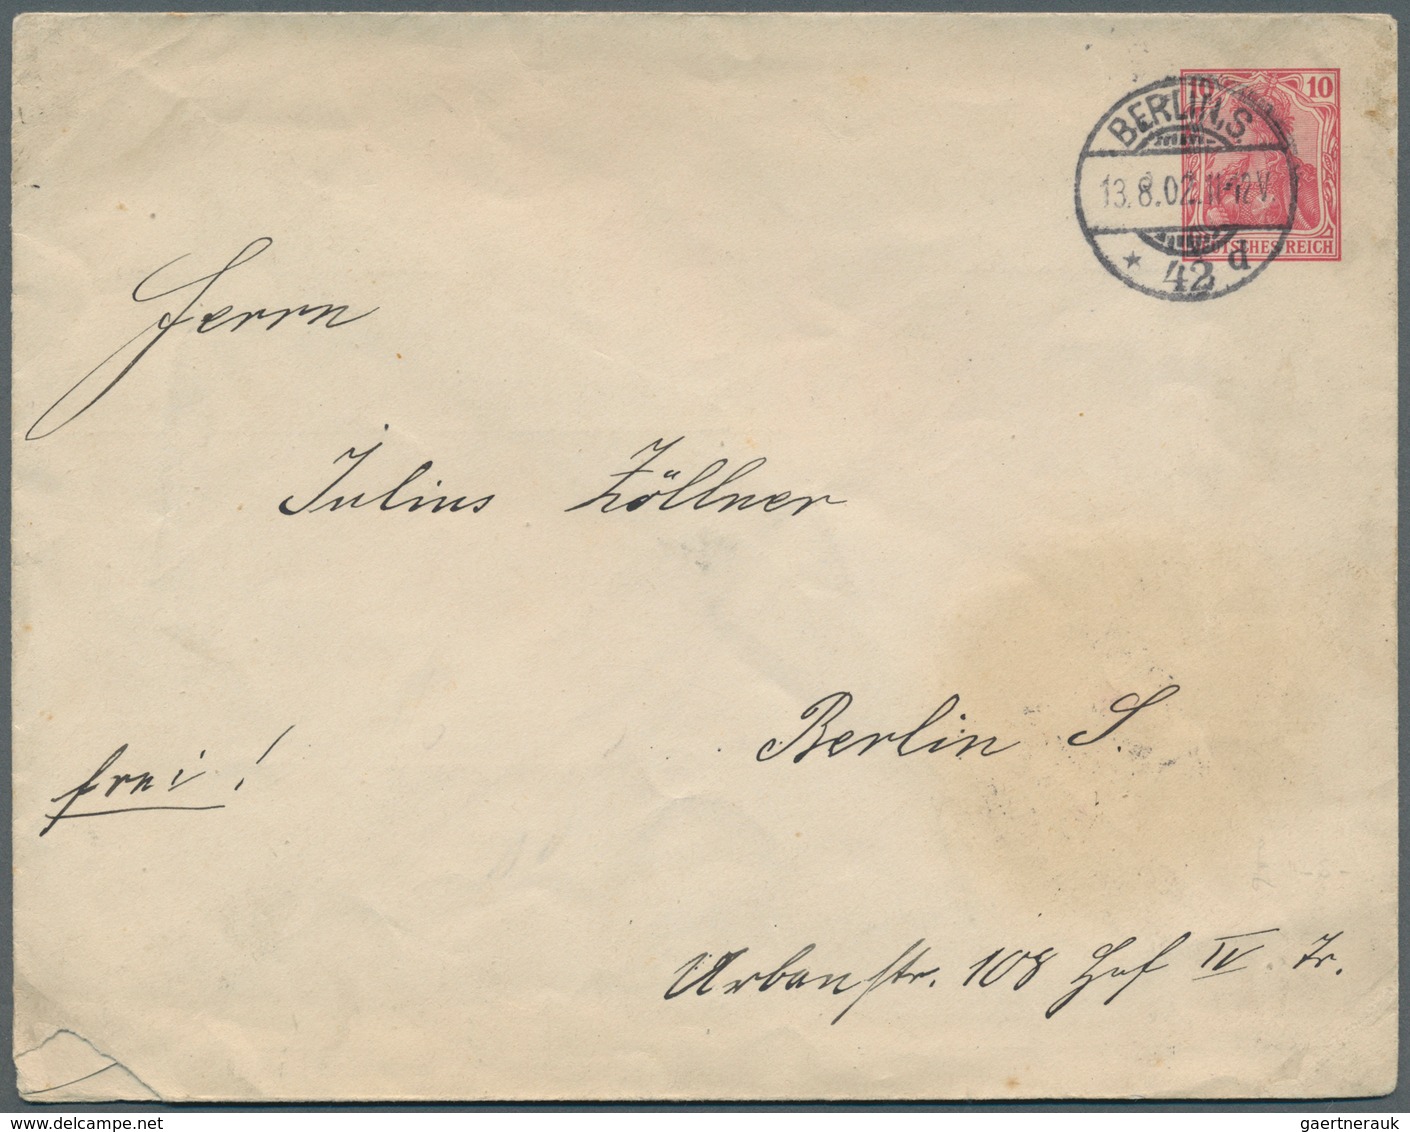 10
BERLIN.S.
13.8.02.11-12V.
DEUTSCHES REICH
* 42 d
Herrn
Julius Zöllner
Berlin S.
frei!
Urbanstr. 108 Hof IV Tr.
gaertnerauk